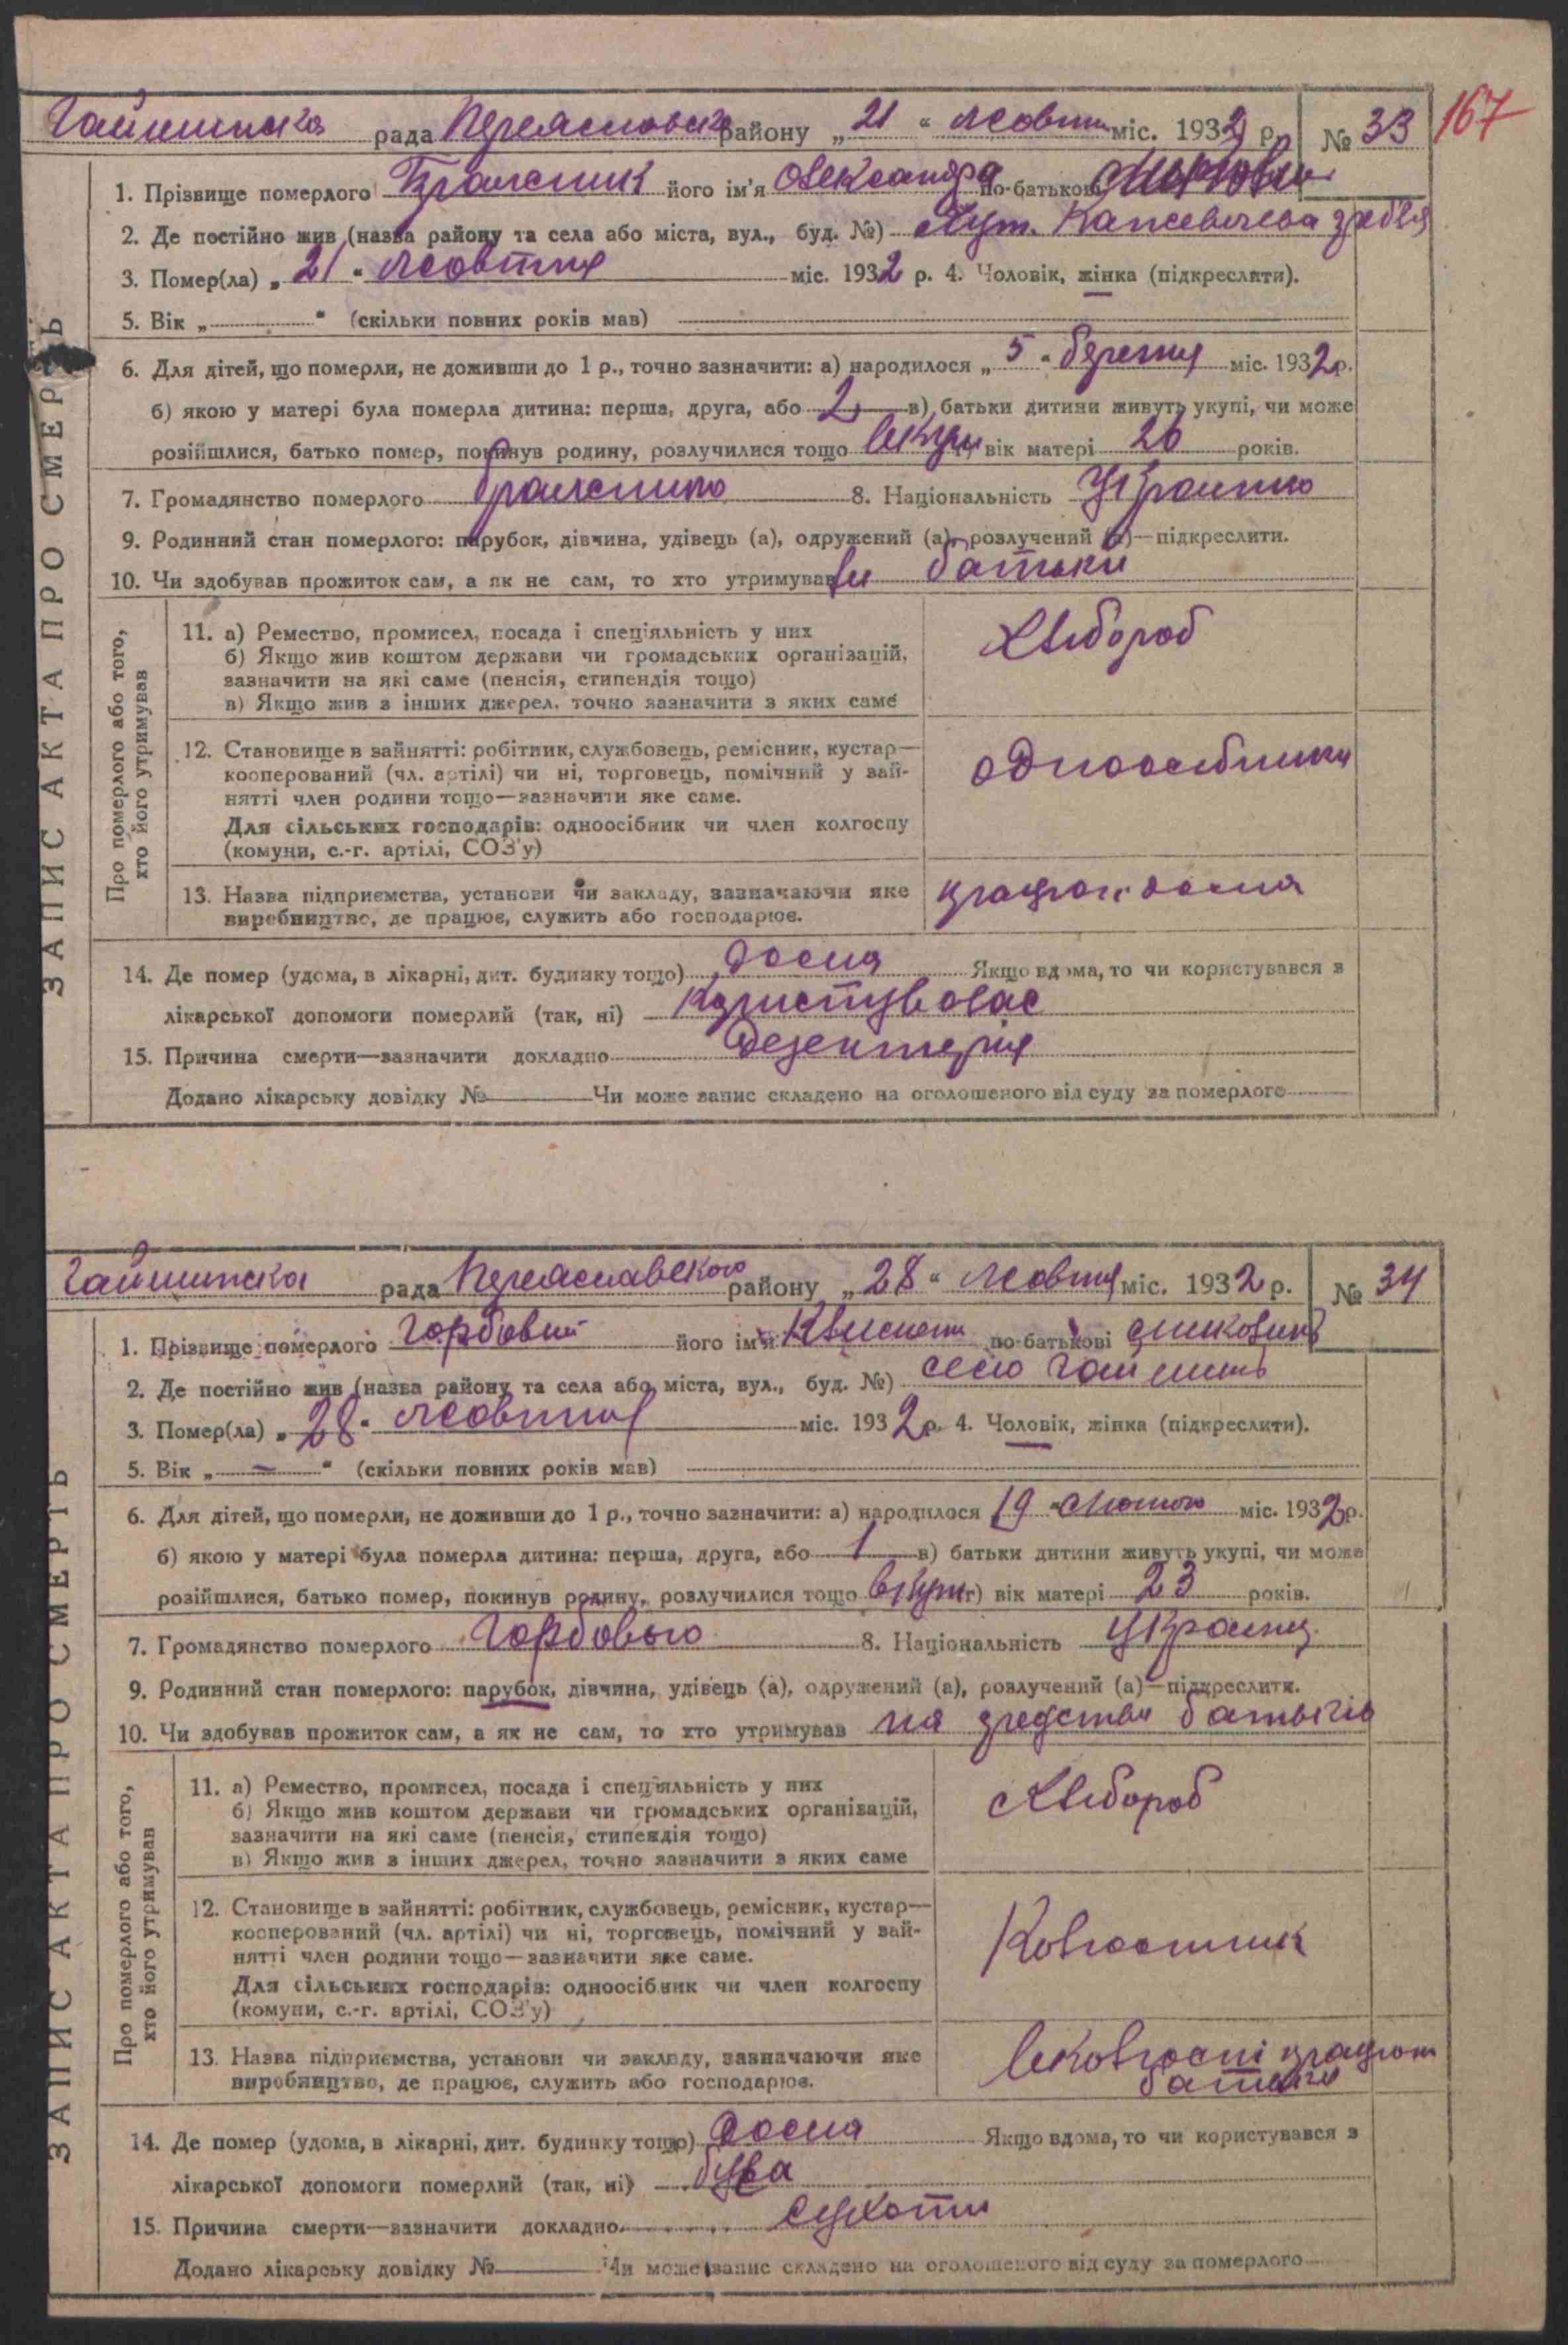 167
Гайшинська рада Переяславського району „21“ жовтня міс. 1932 р. № 33
1. Прізвище померлого його ім'я Олександра по-батькові
2. Де постійно жив (назва району та села або міста, вул., буд. №) Хут.
3. Помер(ла) „21“ жовтня міс. 1932 р. 4. Чоловік, жінка (підкреслити).
5. Вік „ “ (скільки повних років мав)
6. Для дітей, що померли, не доживши до 1 р., точно зазначити: а) народилося „5“ березня міс. 1932 р.
б) якою у матері була померла дитина: перша, друга, або 2 в) батьки дитини живуть укупі, чи може
розійшлися, батько помер, покинув родину, розлучилися тощо вкупі вік матері 26 років.
7. Громадянство померлого 8. Національність Україн
9. Родинний стан померлого: парубок, дівчина, удівець (а), одружений (а), розлучений (а)—підкреслити.
10. Чи здобував прожиток сам, а як не сам, то хто утримував батьки
ЗАПИС АКТА ПРО СМЕРТЬ
Про померлого або того, хто його утримував
11. а) Ремество, промисел, посада і спеціяльність у них
б) Якщо жив коштом держави чи громадських організацій,
зазначити на які саме (пенсія, стипендія тощо)
в) Якщо жив з інших джерел, точно зазначити з яких саме
Хлібороб
12. Становище в зайнятті: робітник, службовець, ремісник, кустар—
кооперований (чл. артілі) чи ні, торговець, помічний у зай-
нятті член родини тощо—зазначити яке саме.
Для сільських господарів: одноосібник чи член колгоспу
(комуни, с.-г. артілі, СОЗ'у)
одноосібники
13. Назва підприємства, установи чи закладу, зазначаючи яке
виробництво, де працює, служить або господарює.
дома
14. Де помер (удома, в лікарні, дит. будинку тощо) дома Якщо вдома, то чи користувався з
лікарської допомоги померлий (так, ні) користувалас
15. Причина смерти—зазначити докладно Дезентерія
Додано лікарську довідку № Чи може запис складено на оголошеного від суду за померлого
Гайшинська рада Переяславського району „28“ жовтня міс. 1932 р. № 34
1. Прізвище померлого Горбовий його ім'я по-батькові
2. Де постійно жив (назва району та села або міста, вул., буд. №) село Гайшин
3. Помер(ла) „28“ жовтня міс. 1932 р. 4. Чоловік, жінка (підкреслити).
5. Вік „—“ (скільки повних років мав)
6. Для дітей, що померли, не доживши до 1 р., точно зазначити: а) народилося 19 “ Лютого міс. 1932 р.
б) якою у матері була померла дитина: перша, друга, або 1 в) батьки дитини живуть укупі, чи може
розійшлися, батько помер, покинув родину, розлучилися тощо вкупі г) вік матері 23 років.
7. Громадянство померлого Горбового 8. Національність Україн
9. Родинний стан померлого: парубок, дівчина, удівець (а), одружений (а), розлучений (а)—підкреслити.
10. Чи здобував прожиток сам, а як не сам, то хто утримував на батьків
ЗАПИС АКТА ПРО СМЕРТЬ
Про померлого або того, хто його утримував
11. а) Ремество, промисел, посада і спеціяльність у них
б) Якщо жив коштом держави чи громадських організацій,
зазначити на які саме (пенсія, стипендія тощо)
в) Якщо жив з інших джерел, точно зазначити з яких саме
Хлібороб
12. Становище в зайнятті: робітник, службовець, ремісник, кустар—
кооперований (чл. артілі) чи ні, торговець, помічний у зай-
нятті член родини тощо—зазначити яке саме.
Для сільських господарів: одноосібник чи член колгоспу
(комуни, с.-г. артілі, СОЗ'у)
Колгоспник
13. Назва підприємства, установи чи закладу, зазначаючи яке
виробництво, де працює, служить або господарює.
вколгоспі працюют
батьки
14. Де помер (удома, в лікарні, дит. будинку тощо) Дома Якщо вдома, то чи користувався з
лікарської допомоги померлий (так, ні) була
15. Причина смерти—зазначити докладно сухоти
Додано лікарську довідку № Чи може запис складено на оголошеного від суду за померлого